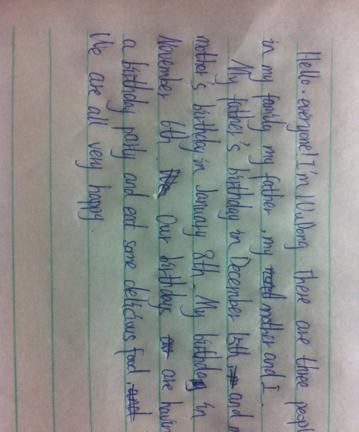 Hello. everyone! I'm Wu Dong. There are three peopl
in my family, my father, my mother and I.
My father's birthday in December 15th and m
mother's birthday in January 8th. My birthday in
November 6th. Our birthdays are havin
a birthday party and eat some delicious food.
We are all very happy.